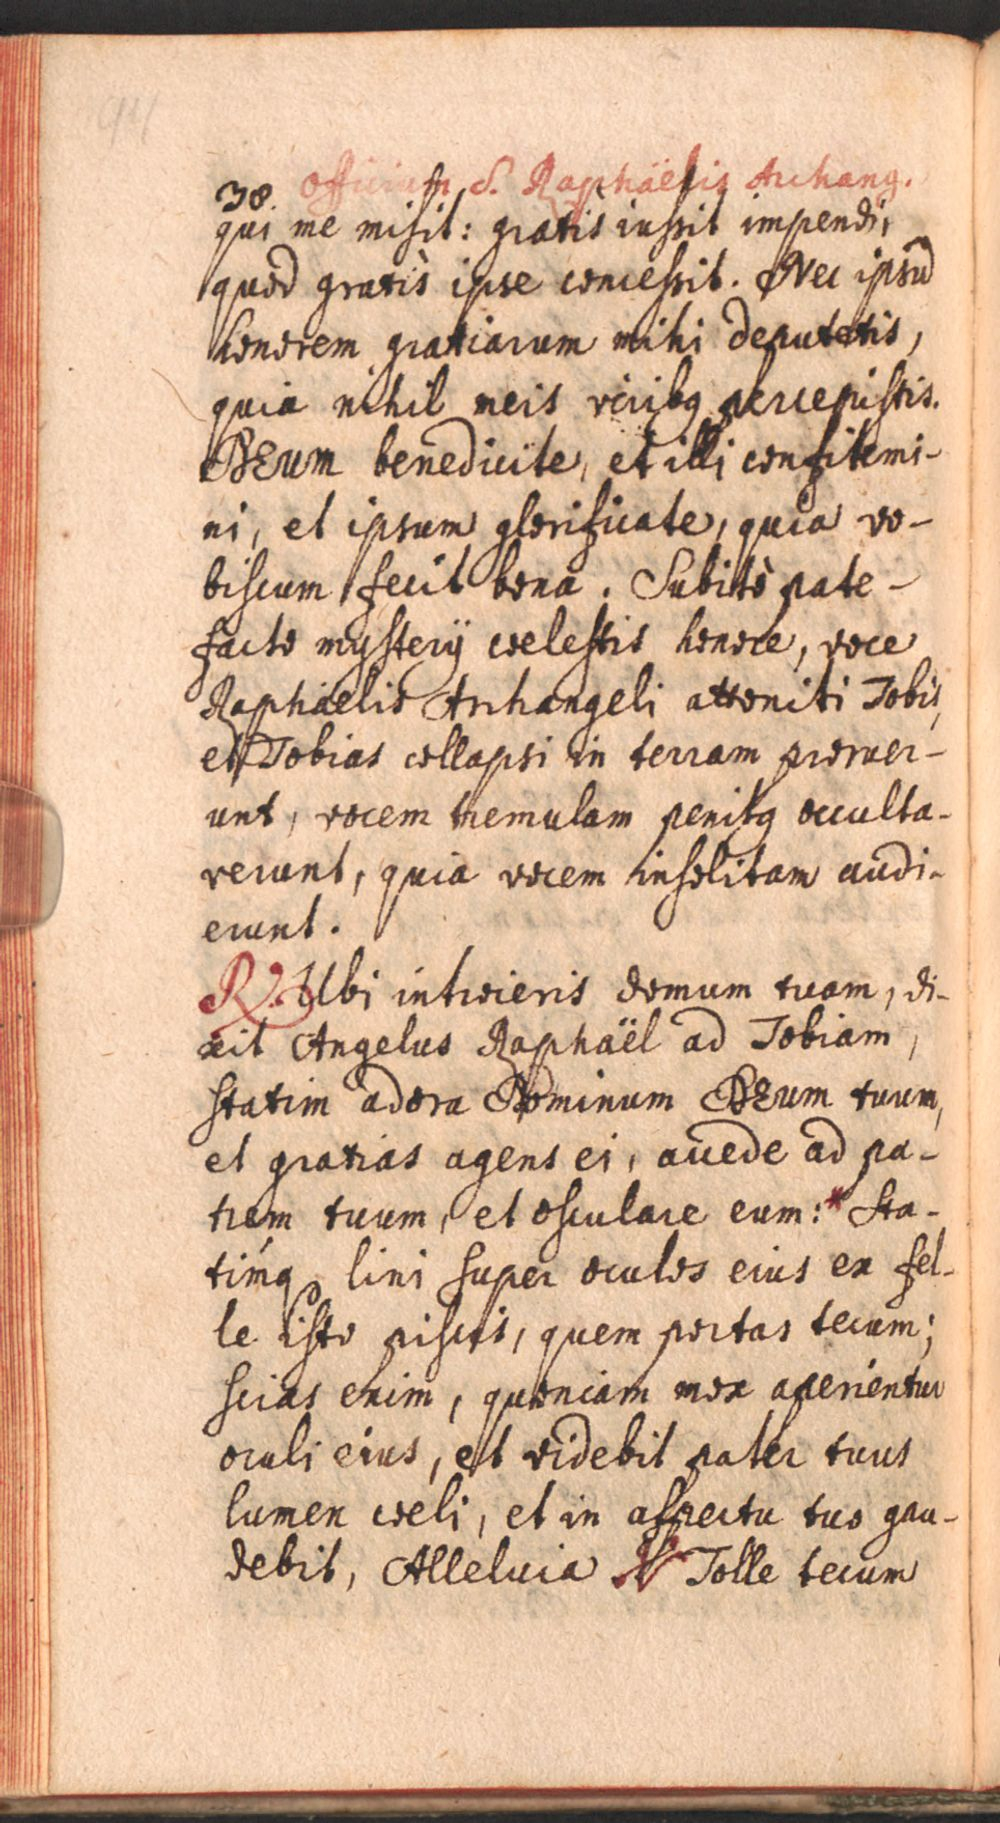 38. Officium S. Raphaëlis Archang.
qui me misit: gratis iussit impendi,
quod gratìs ipse concessit. Nec ipsũd
honorem gratiarum mihi deputetis,
quia nihil meis viribq percepistis.
DEum benedicite, et illi confitemi-
ni, et ipsum glorificate, quia vo-
biscum fecit bona. Subitò pate-
facto mysterÿ coelestis honore, voce
Raphaelis Archangeli attoniti Tobis,
et Tobias collapsi in terram proruer-
unt, vocem tremulam penitq occulta-
verunt, quia vocem insolitam audi-
erunt.
R. Ubi introieris domum tuam, di-
xit Angelus Raphaël ad Tobiam,
statim adora Dominum DEum tuum,
et gratias agens ei, accede ad pa-
trem tuum, et osculare eum:* Sta-
timq lini super oculos eius ex fel-
le isto piscis, quem portas tecum;
scias enim, quoniam mox aperientur
oculi eius, et videbit pater tuus
lumen coeli, et in aspectu tuo gau-
debit, Alleluia V Tolle tecum